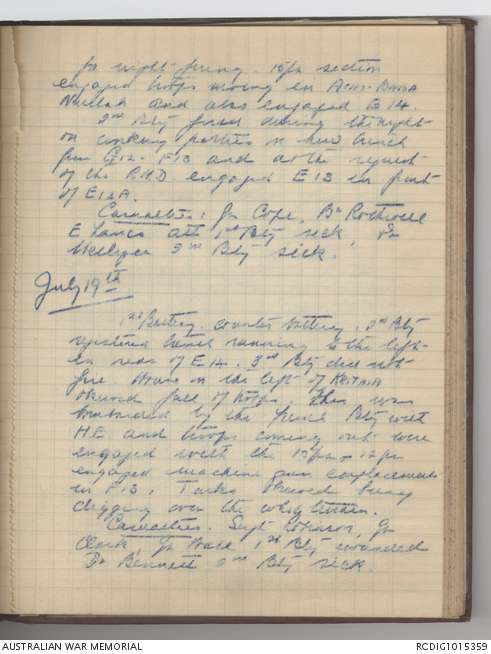 for night firing. 15pr section
engaged troops moving in ACHI-BABA
Nullah and also engaged E 14.
2nd Bty fired during the night
on working parties in new trench
from G12 - F13 and at the request
of the R.N.D. engaged E 13 in front
of E12A.
Casualties: Gr Cope, Br Rothwell
E Lancs att 1st Bty sick, Dr
2nd Bty sick.
July 19th
1st Battery. counter battery. 2nd Bty
registered trench running to the left
in rear of E14. 3rd Bty did not
fire. House on the left of KRITHIA
observed full of troops. This was
bombarded by the French Bty with
H.E and troops coming out were
engaged with the 15prs.
engaged machine gun emplacements
in F13. Turks observed being
digging over the whole
Casualties. Sergt Johnson, Gr
Clark, Gr 1st Bty wounded
Dr Bennett 2nd Bty sick.
AUSTRALIAN WAR MEMORIAL
RCDIG1015359